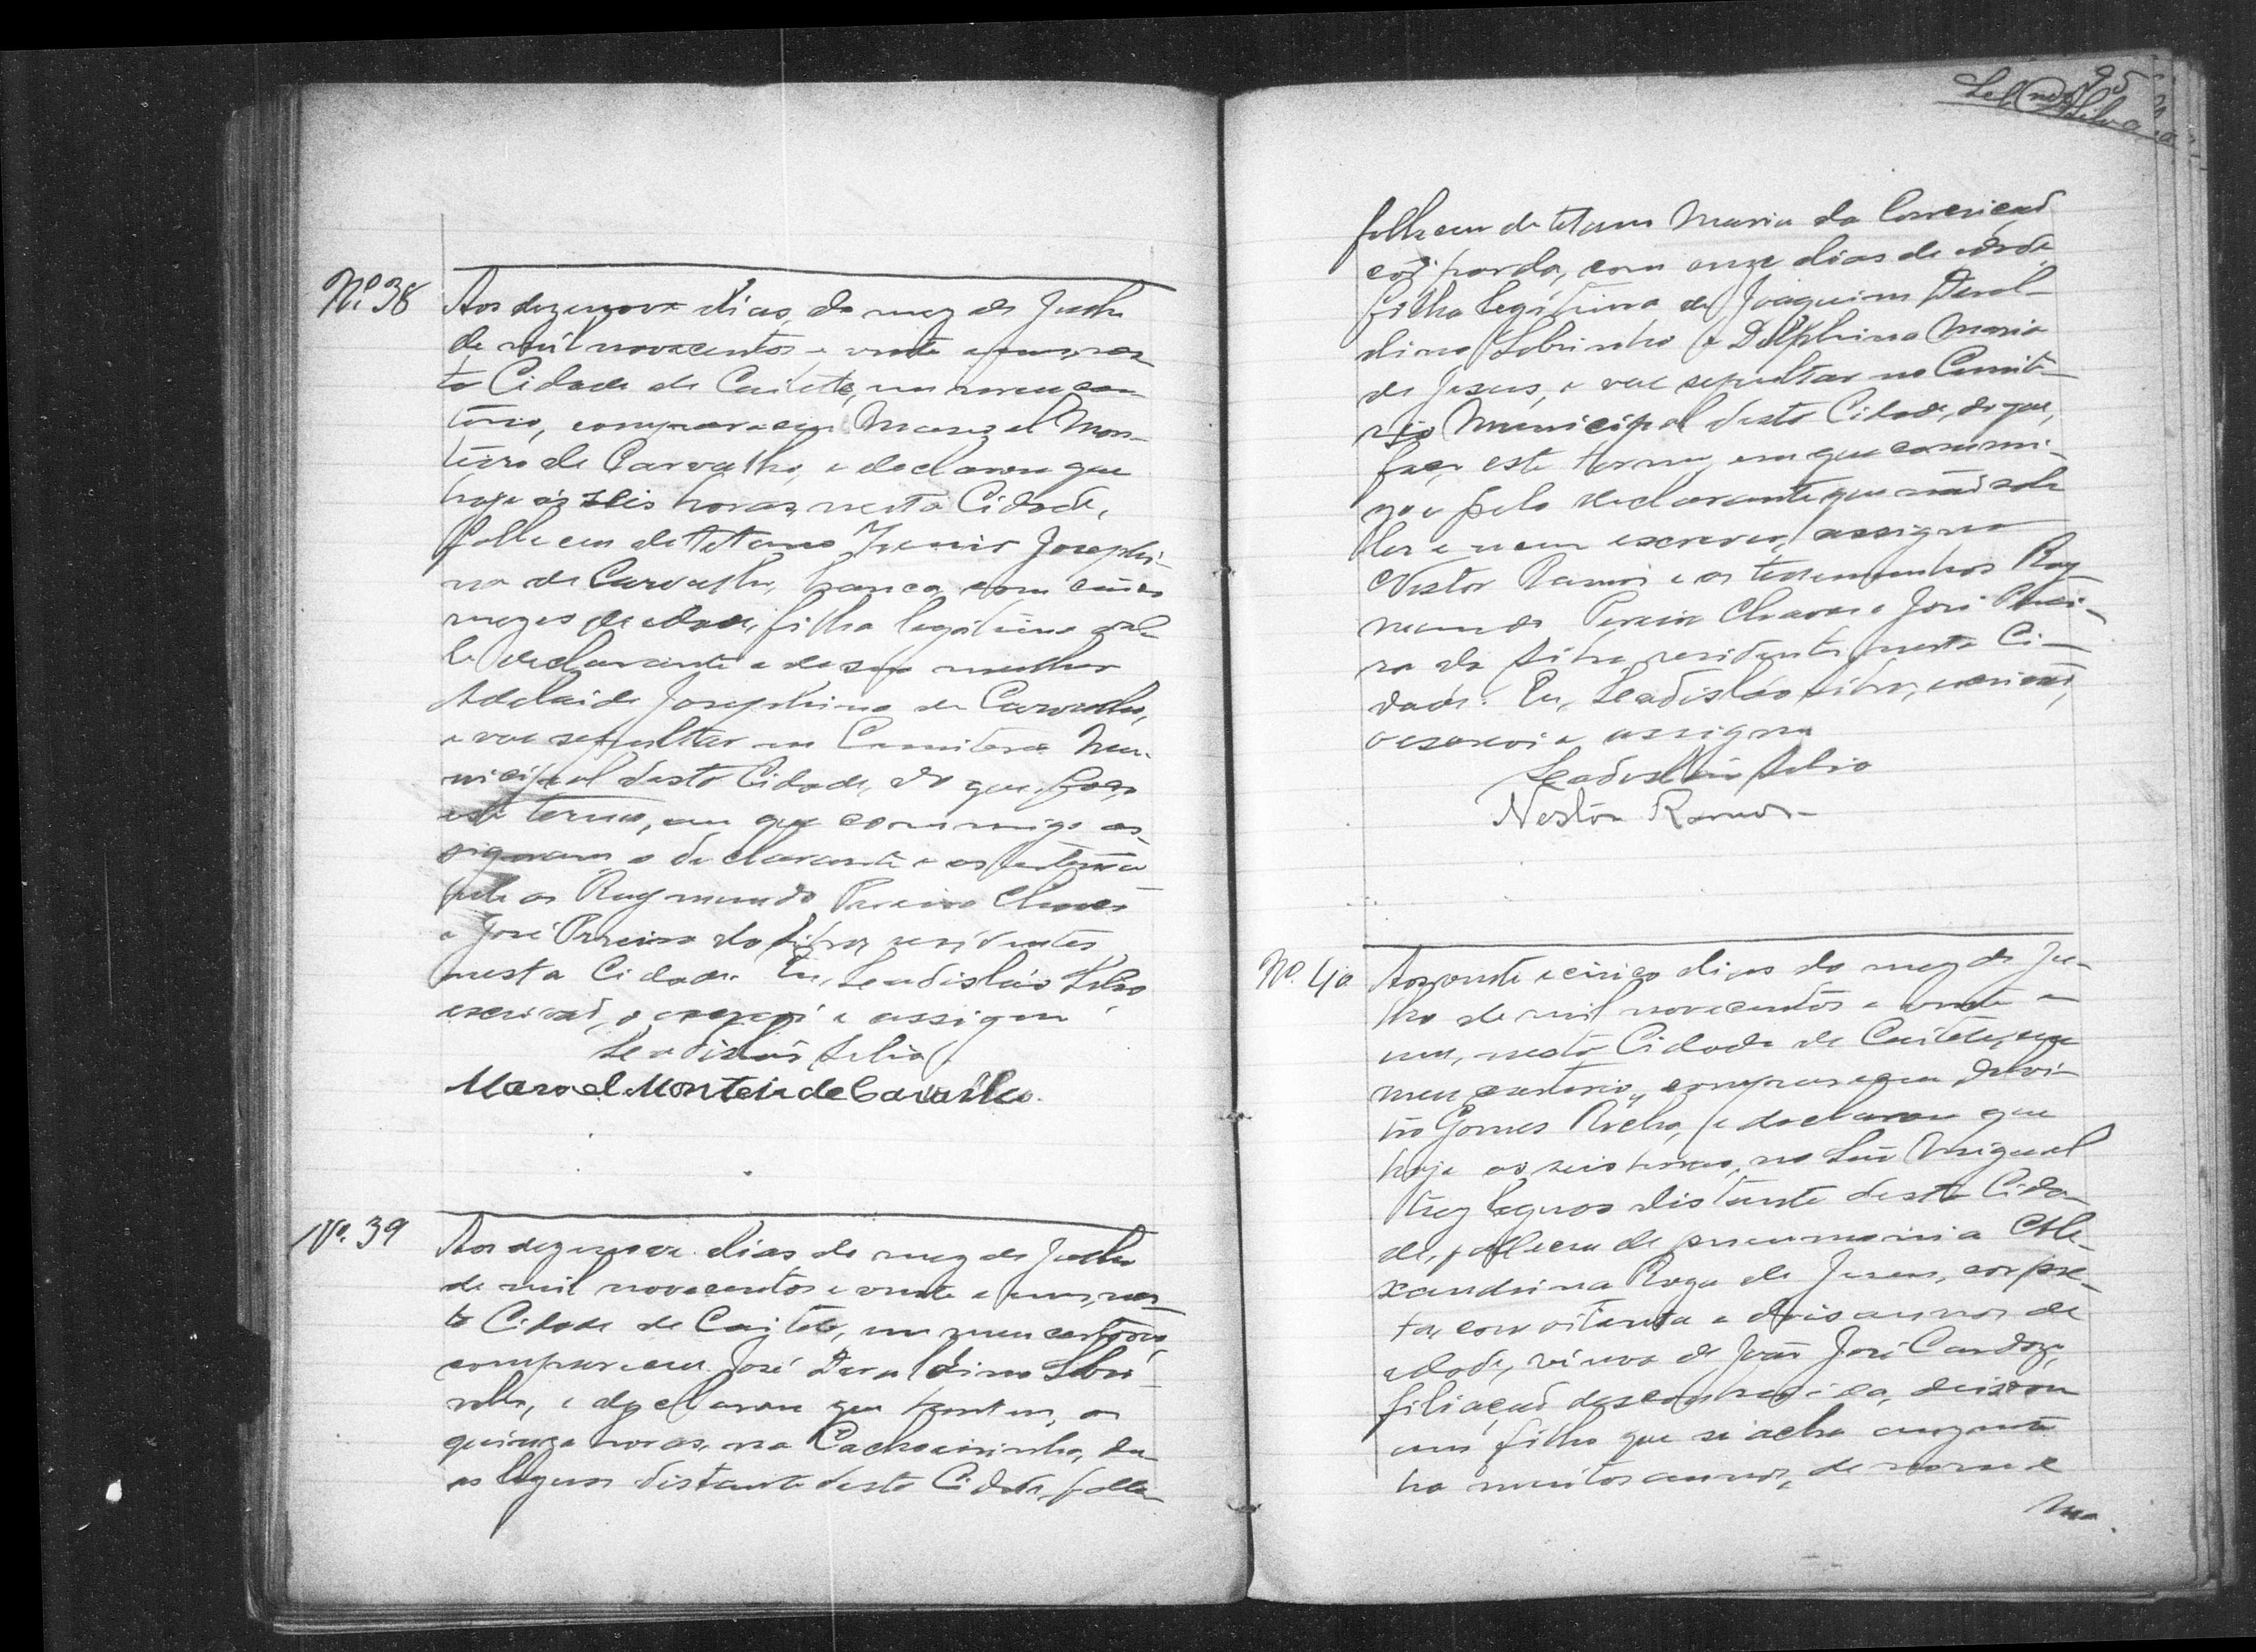 Nº 38
Aos dezenove dias do mez de Julho
de mil novecentos e vinte e um, nes-
ta Cidade de Caiteté, em meu car-
torio, compareceu Manoel Mon-
teiro de Carvalho, e declarou que
hoje ás seis horas, nesta Cidade,
falleceu de tetano Josephi-
na de Carvalho, branca, com cinco
mezes de edade, filha legitima del-
le declarante e de sua mulher
Adelaide Josephina de Carvalho,
e vae sepultar no Cemiterio Mu-
nicipal desta Cidade, do que faço
este termo, em que commigo as-
signaram o declarante e as testemu-
Raymundo Pereira Chaves
e José Pereira da Silva, residentes
nesta Cidade. Eu, Leadisláo Silva,
escrivaõ, o escrevi e assigno
Leadisláo Silva
Manoel Monteiro de Carvalho.
Nº. 39
Aos dezenove dias do mez de Julho
de mil novecentos e vinte e um, nes-
ta Cidade de Caiteté, em meu cartorio,
compareceu José Deraldino Sobri-
nho, e declarou que hontem, as
quinze horas, na Cachoeirinha, du-
as leguas distante desta Cidade, falle-
95
falleceu de tetano Maria da Conceiçaõ
côr parda, com onze dias de edade
filha legitima de Joaquim Deral-
dino Sobrinho e Delphina Maria
de Jesus, e vae sepultar no Cemite-
rio Municipal desta Cidade, do que,
faço este termo, em que commi-
go e pelo declarante que naõ sabe
ler e nem escrever, assigna
Nestor Ramos e as testemunhas Ray-
mundo Pereira Chaves e José Perei-
ra da Silva, residentes nesta Ci-
dade. Eu, Leadisláo Silva, escrivaõ,
o escrevi e assigno
Leadisláo Silva
Nestôr Ramos
Nº. 40
Aos vinte e cinco dias do mez de Ju-
lho de mil novecentos e vinte e
um, nesta Cidade de Caiteté, em
meu cartorio, compareceu
Gomes Rocha, e declarou que
hoje as seis horas, no Saõ Miguel
trez leguas distante desta Cida-
de, falleceu de pneumonia Ale-
xandrina Roza de Jesus, cor pre-
ta, com oitenta e dois annos de
edade, viuva de Joaõ José Cardozo,
filiaçaõ desconhecida, deixou
um filho que se acha auzente
ha muitos annos, de nome
Ma